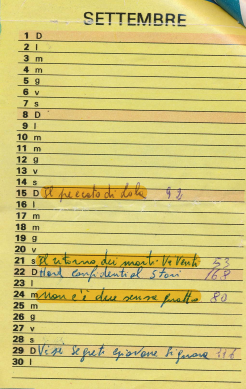 SETTEMBRE
1 D
2 l
3 m
4 m
5 g
6 v
7 s
8 D
9 l
10 m
11 m
12 g
13 v
14 s
15 D Il peccato di Lola 92
16 l
17 m
18 m
19 g
20 v
21 s Il ritorno dei morti viventi 53
22 D Hard confidential stori 168
23 l
24 m non c'è due senza quattro 80
25 g
26 g
27 v
28 s
29 D Vizi segreti giovane signora 116
30 l